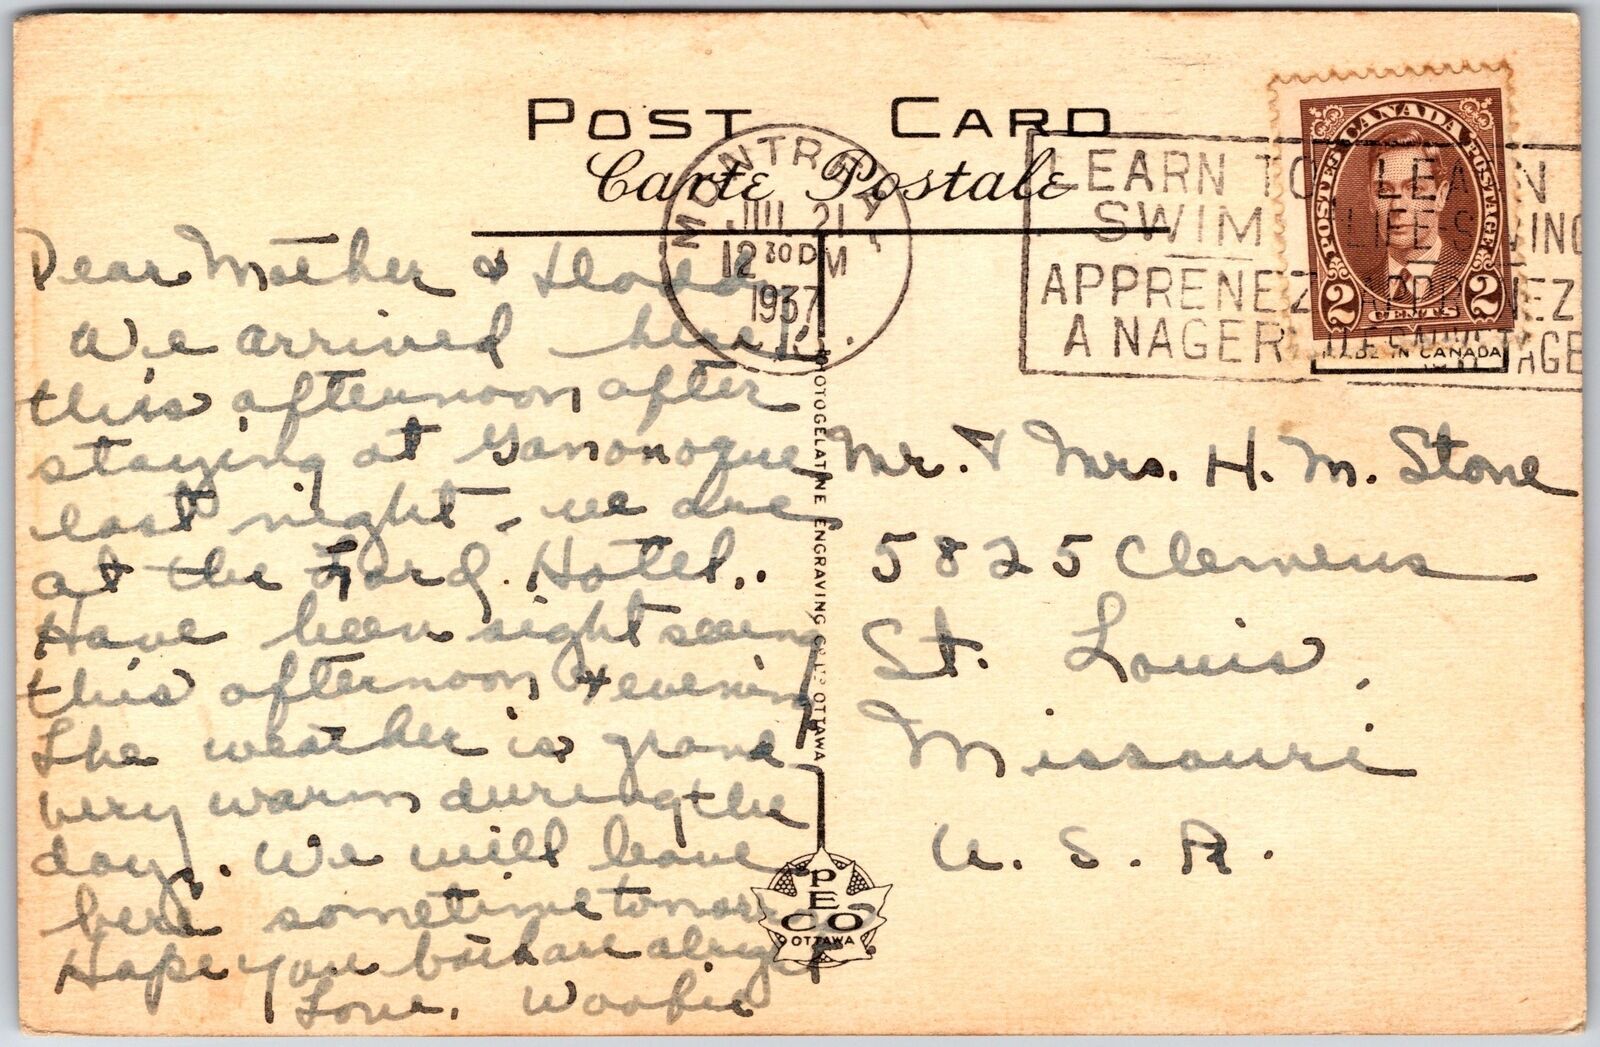 POST CARD
Carte Postale
MONTREAL
JUL 21
12 30 PM
1937
LEARN TO SWIM
APPRENEZ A NAGER
LEARN LIFE-SAVING
APPRENEZ
CANADA
POSTES POSTAGE
2 CENTS 2
MADE IN CANADA
Dear Mother &
We arrived here
this afternoon after
staying at Gananoque
last night - we are
at the Ford Hotel.
Have been sight seeing
this afternoon & evening
The weather is grand
very warm during the
day. We will leave
here sometime tomorrow
Hope you both are alright.
Love, Woobie
PHOTOGELATINE ENGRAVING CO LTD OTTAWA
PECO
OTTAWA
Mr. & Mrs. H. M. Stone
5825 Clemens
St. Louis,
Missouri
U. S. A.